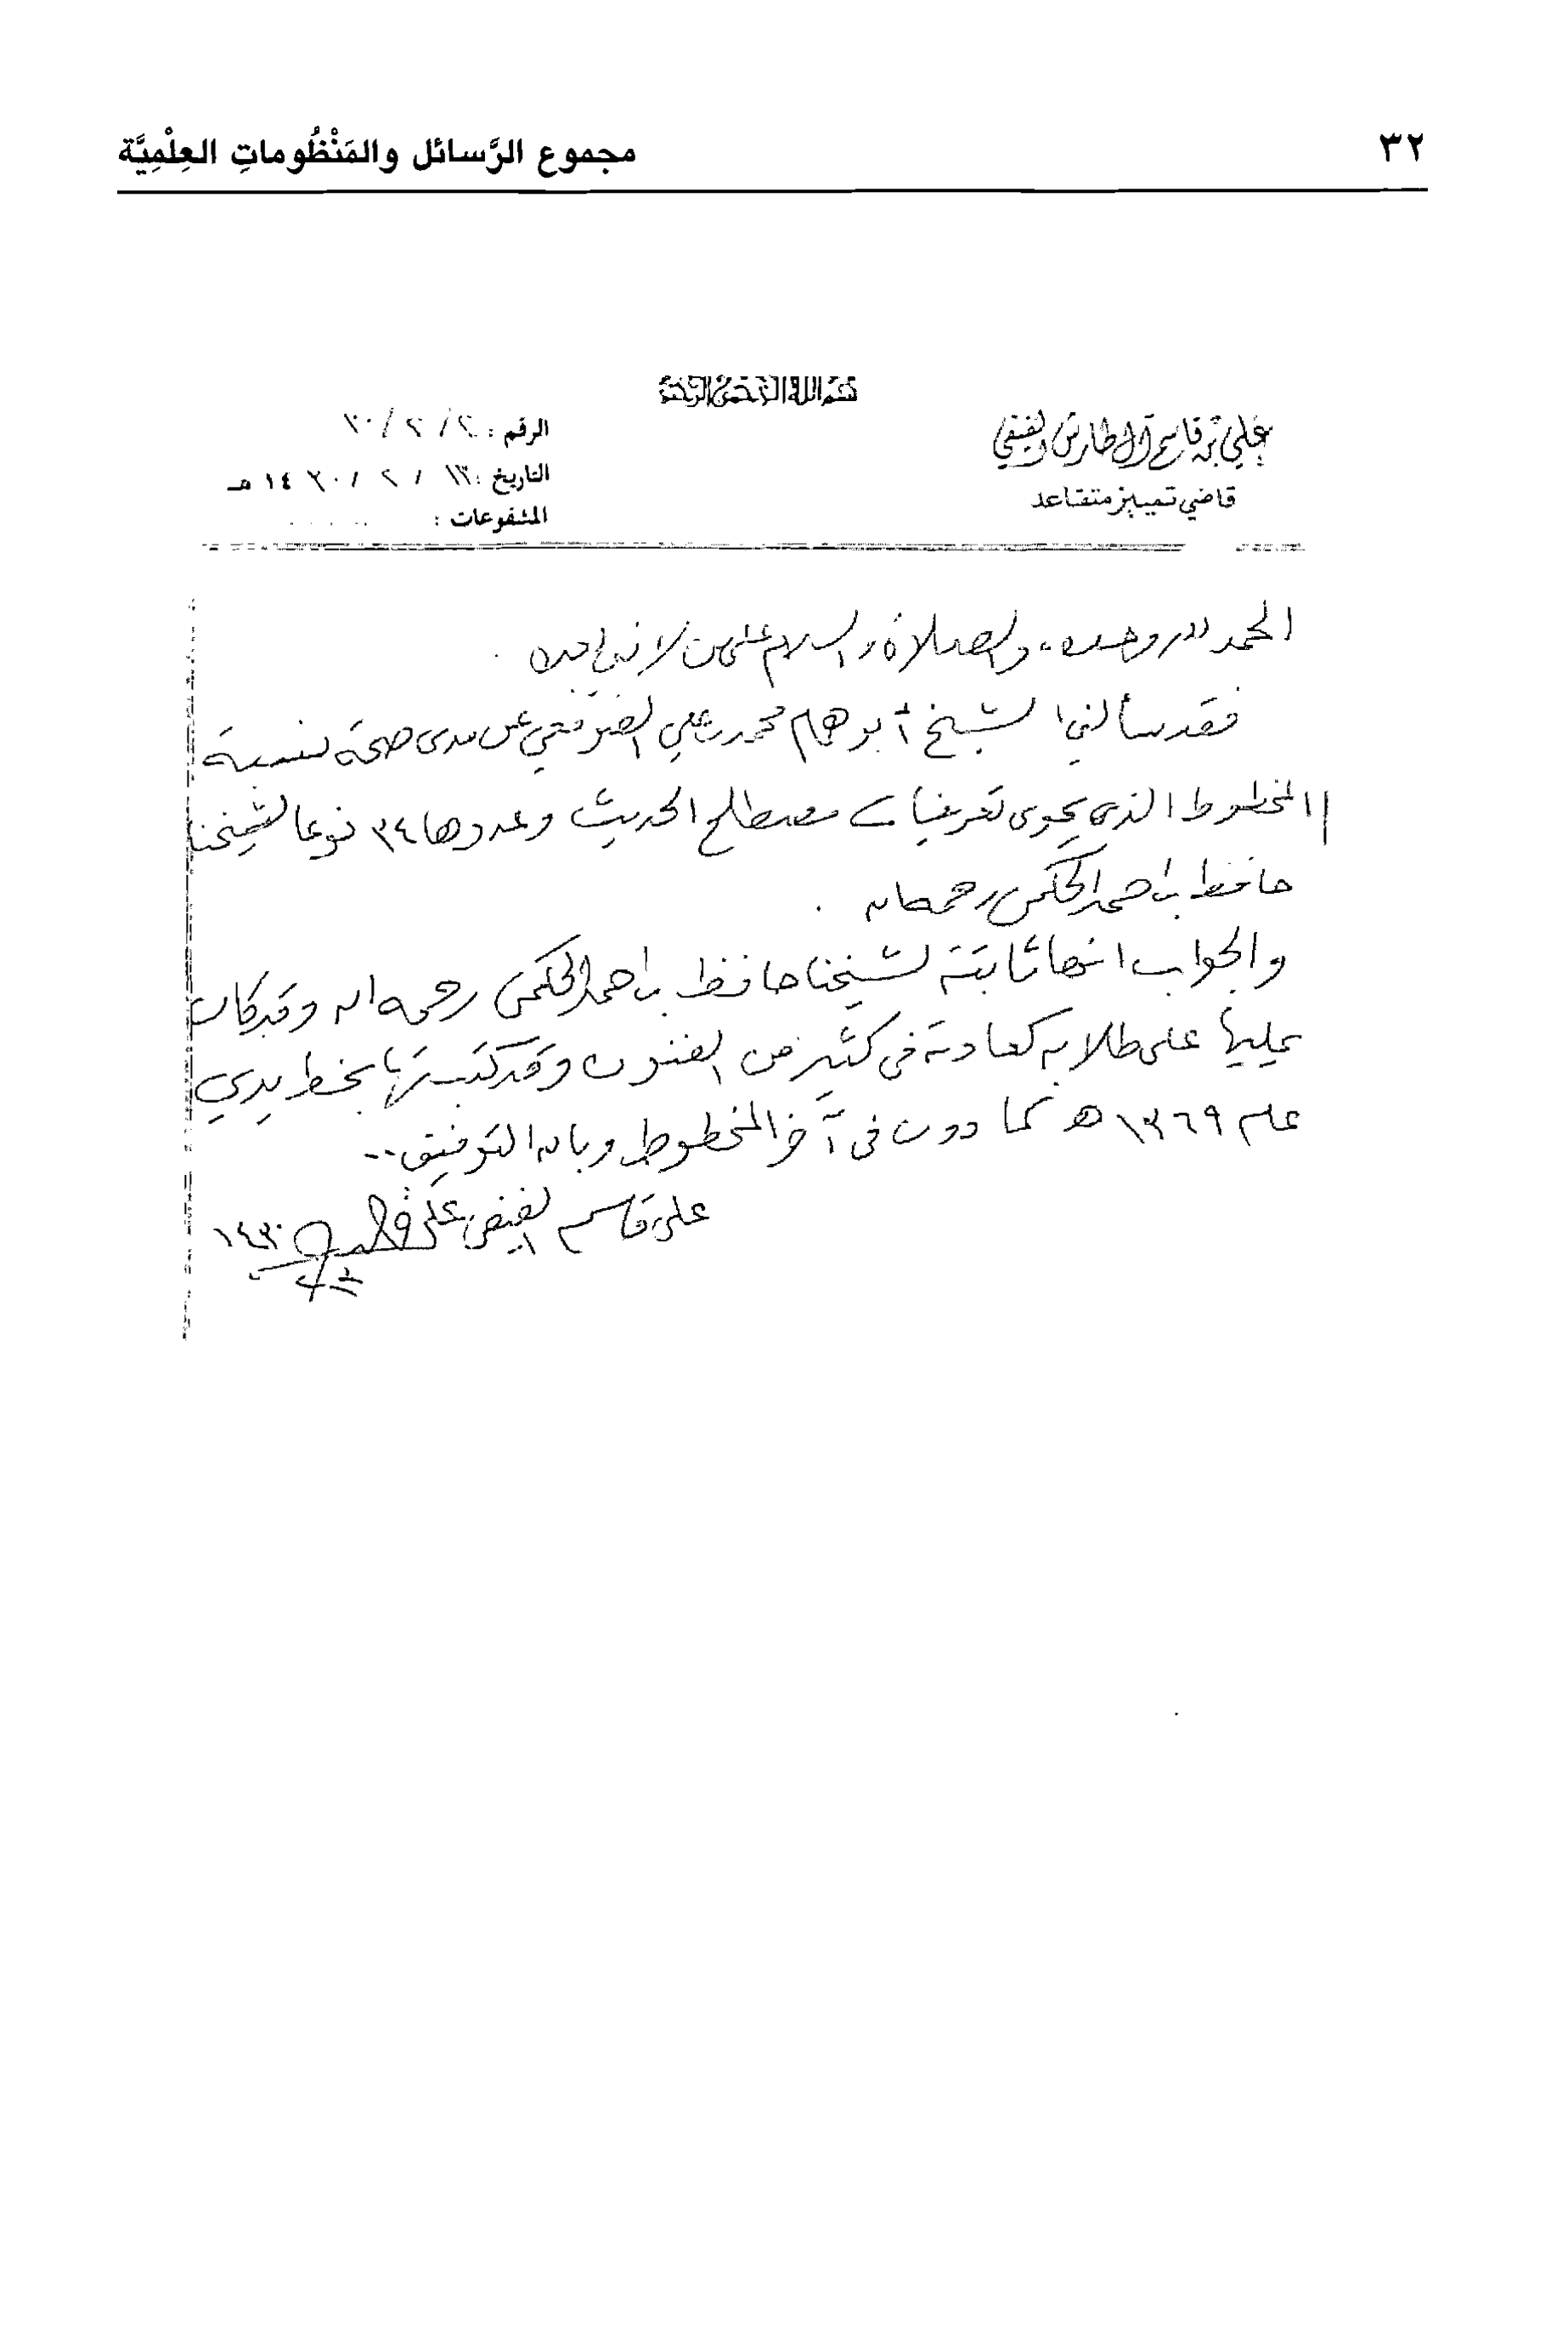 ٣٢
مجموع الرَّسائل والمَنْظُوماتِ العِلْمِيَّة
بسم الله الرحمن الرحيم
علي بن قاسم آل طارش الفيفي
قاضي تمييز متقاعد
الرقم : ٢ / ٢ / ٣٠
التاريخ : ١٣ / ٢ / ١٤٣٠ هـ
المشفوعات :
الحمد لله وحده، والصلاة والسلام على من لا نبي بعده .
فقد سألني الشيخ أبو همام محمد علي الصومعي عن مدى صحة نسبة
المخطوط الذي يحوي تعريفات مصطلح الحديث وعددها ٣٤ نوعا لشيخنا
حافظ بن احمد الحكمي رحمه الله .
والجواب انها ثابتة لشيخنا حافظ بن احمد الحكمي رحمه الله وقد كان
يمليها على طلابه كعادته في كثير من الفنون وقد كتبتها بخط يدي
عام ١٣٦٩ هـ كما دون في آخر المخطوط وبالله التوفيق ..
علي قاسم الفيفي
١٤٣٠